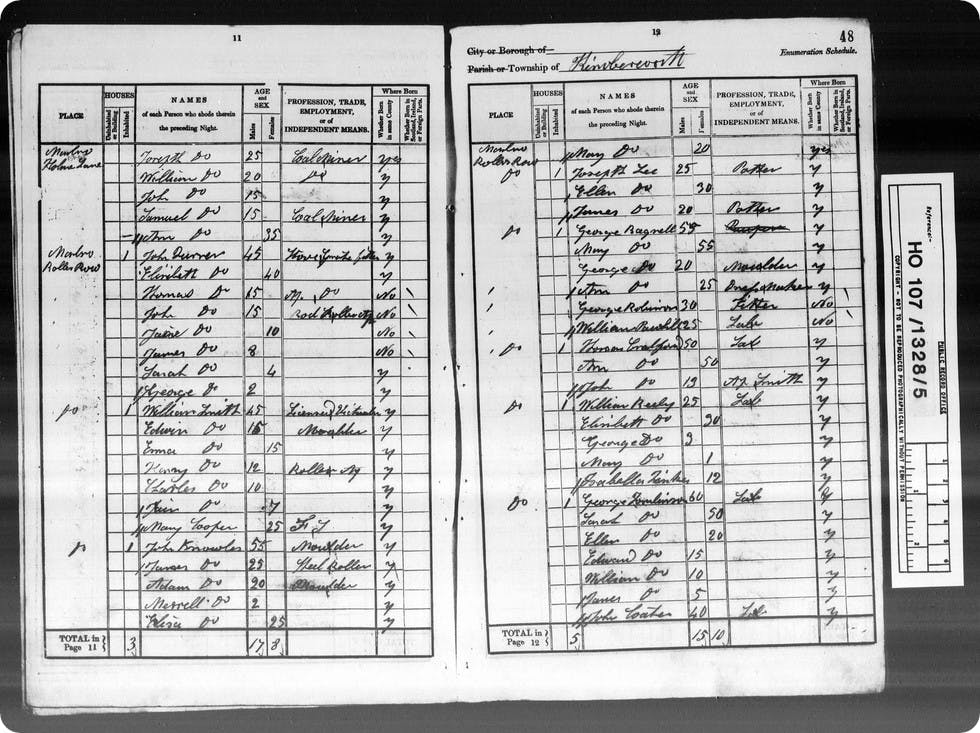 11
HOUSES
AGE and SEX
Where Born
PLACE
Uninhabited or Building
Inhabited
NAMES of each Person who abode therein the preceding Night.
Males
Females
PROFESSION, TRADE, EMPLOYMENT, or of INDEPENDENT MEANS.
Whether Born in same County
Whether Born in Scotland, Ireland, or Foreign Parts.
Joseph Do 25 yes
William Do 20 Do y
John Do 15 y
Samuel Do 15 y
Ann Do 35 y
Roller Row 1 John 45 y
Do 40 y
Thomas Do 15 Do No
John Do 15 No
Jane Do 10 No
James Do 8 No
Sarah Do 4 y
George Do 2 y
Do 1 William Smith 45 y
Edwin Do 15 Moulder y
Emma Do 15 y
Henry Do 12 Roller y
Charles Do 10 y
Do 7 y
Mary Cooper 25 F. S y
Do 1 John Knowles 55 Moulder y
James Do 25 Roller y
Adam Do 20 Moulder y
Do 2 y
Eliza Do 25 y
TOTAL in Page 11 3 17 8
12
48
City or Borough of
Enumeration Schedule.
Parish or Township of Kimberworth
HOUSES
AGE and SEX
Where Born
PLACE
Uninhabited or Building
Inhabited
NAMES of each Person who abode therein the preceding Night.
Males
Females
PROFESSION, TRADE, EMPLOYMENT, or of INDEPENDENT MEANS.
Whether Born in same County
Whether Born in Scotland, Ireland, or Foreign Parts.
Roller Row Mary Do 20 yes
Do 1 Joseph Lee 25 Potter y
Ellen Do 30 y
James Do 20 Potter y
Do 1 George Bagnell 55 y
Mary Do 55 y
George Do 20 Moulder y
Ann Do 25 Dress Maker y
George Robinson 30 Fitter No
William 25 Lab No
Do 1 Thomas 50 Lab y
Ann Do 50 y
John Do 19 Ap Smith y
Do 1 William 25 Lab y
Elizibeth Do 30 y
George Do 3 y
Mary Do 1 y
Isabella 12 y
Do 1 George Tomlinson 60 Lab y
Sarah Do 50 y
Ellen Do 20 y
Edward Do 15 y
William Do 10 y
James Do 5 y
John 40 Lab y
TOTAL in Page 12 5 15 10
Reference:-
HO 107/1328/5
PUBLIC RECORD OFFICE
COPYRIGHT - NOT TO BE REPRODUCED PHOTOGRAPHICALLY WITHOUT PERMISSION